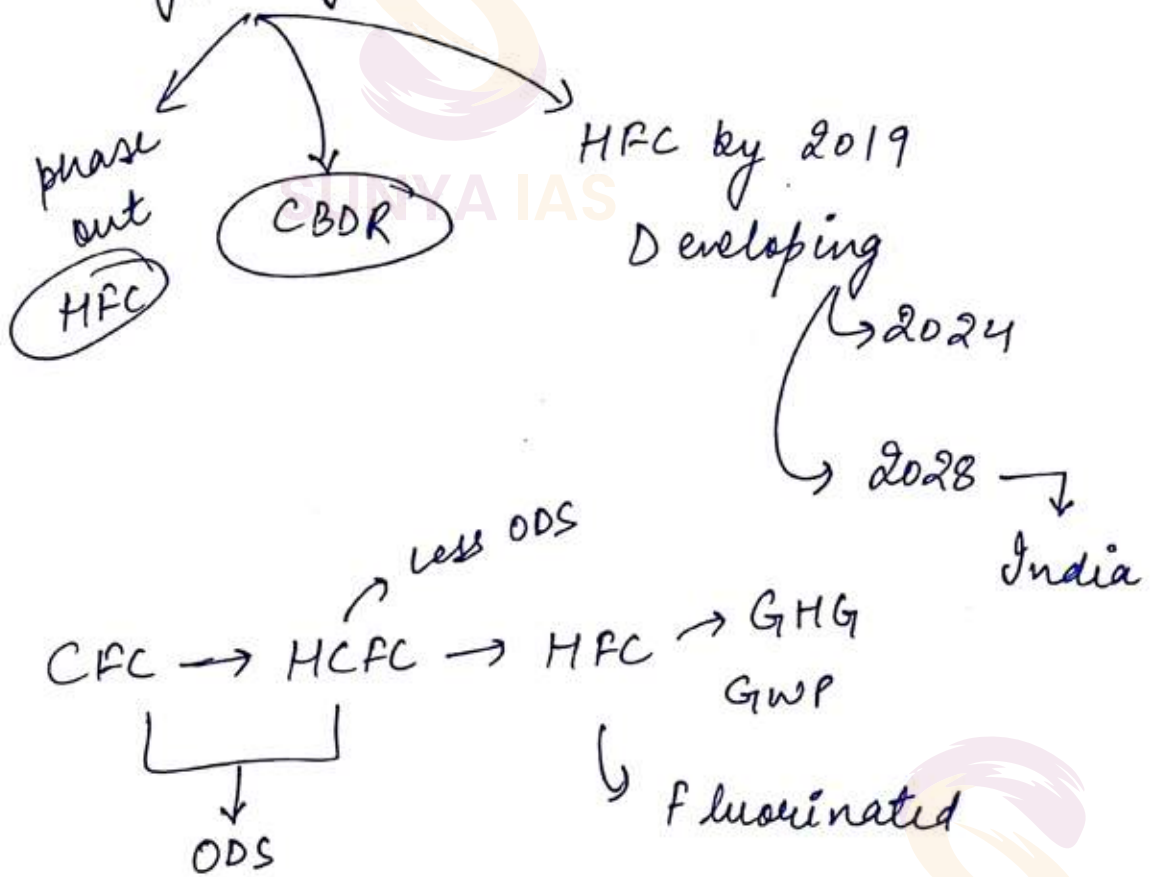 phase
out
HFC
CBDR
HFC by 2019
Developing
2024
2028
India
SUNYA IAS
less ODS
CFC → HCFC → HFC → GHG
GWP
ODS
Fluorinated